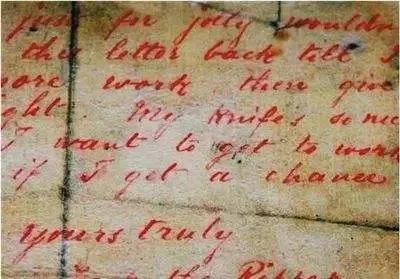 just for jolly wouldn
this letter back till I
more work then give
ght. My knife's so nic
I want to get to work
if I get a chance
yours truly
the Ripper